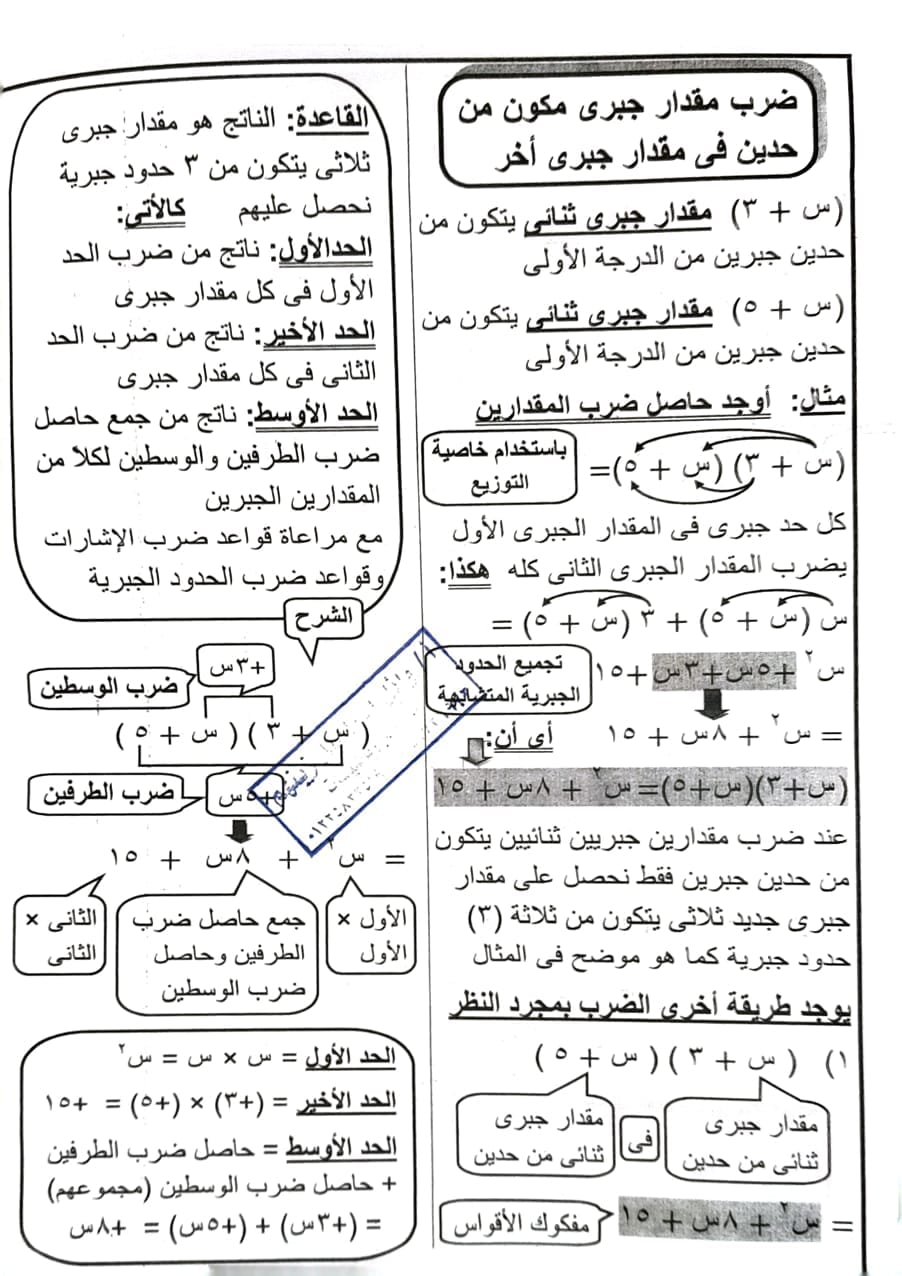 ضرب مقدار جبرى مكون من
حدين فى مقدار جبرى أخر
(س + ٣) مقدار جبرى ثنائى يتكون من
حدين جبرين من الدرجة الأولى
(س + ٥) مقدار جبرى ثنائى يتكون من
حدين جبرين من الدرجة الأولى
مثال: أوجد حاصل ضرب المقدارين
(س + ٣) (س + ٥)=
باستخدام خاصية
التوزيع
كل حد جبرى فى المقدار الجبرى الأول
يضرب المقدار الجبرى الثانى كله هكذا:
س (س + ٥) + ٣ (س + ٥) =
س٢ +٥س+٣س +١٥
تجميع الحدود
الجبرية المتشابهة
= س٢ + ٨س + ١٥ أى أن:
(س+٣)(س+٥)= س٢ + ٨س + ١٥
عند ضرب مقدارين جبريين ثنائيين يتكون
من حدين جبرين فقط نحصل على مقدار
جبرى جديد ثلاثى يتكون من ثلاثة (٣)
حدود جبرية كما هو موضح فى المثال
يوجد طريقة أخرى الضرب بمجرد النظر
١) (س + ٣) (س + ٥)
مقدار جبرى
ثنائى من حدين
فى
مقدار جبرى
ثنائى من حدين
= س٢ + ٨س + ١٥
مفكوك الأقواس
القاعدة: الناتج هو مقدار جبرى
ثلاثى يتكون من ٣ حدود جبرية
نحصل عليهم كالأتى:
الحدالأول: ناتج من ضرب الحد
الأول فى كل مقدار جبرى
الحد الأخير: ناتج من ضرب الحد
الثانى فى كل مقدار جبرى
الحد الأوسط: ناتج من جمع حاصل
ضرب الطرفين والوسطين لكلاً من
المقدارين الجبرين
مع مراعاة قواعد ضرب الإشارات
وقواعد ضرب الحدود الجبرية
الشرح
+٣س
ضرب الوسطين
(س + ٣) (س + ٥)
+٥س
ضرب الطرفين
= س٢ + ٨س + ١٥
الأول ×
الأول
جمع حاصل ضرب
الطرفين وحاصل
ضرب الوسطين
الثانى ×
الثانى
الحد الأول = س × س = س٢
الحد الأخير = (+٣) × (+٥) = +١٥
الحد الأوسط = حاصل ضرب الطرفين
+ حاصل ضرب الوسطين (مجموعهم)
= (+٣س) + (+٥س) = +٨س